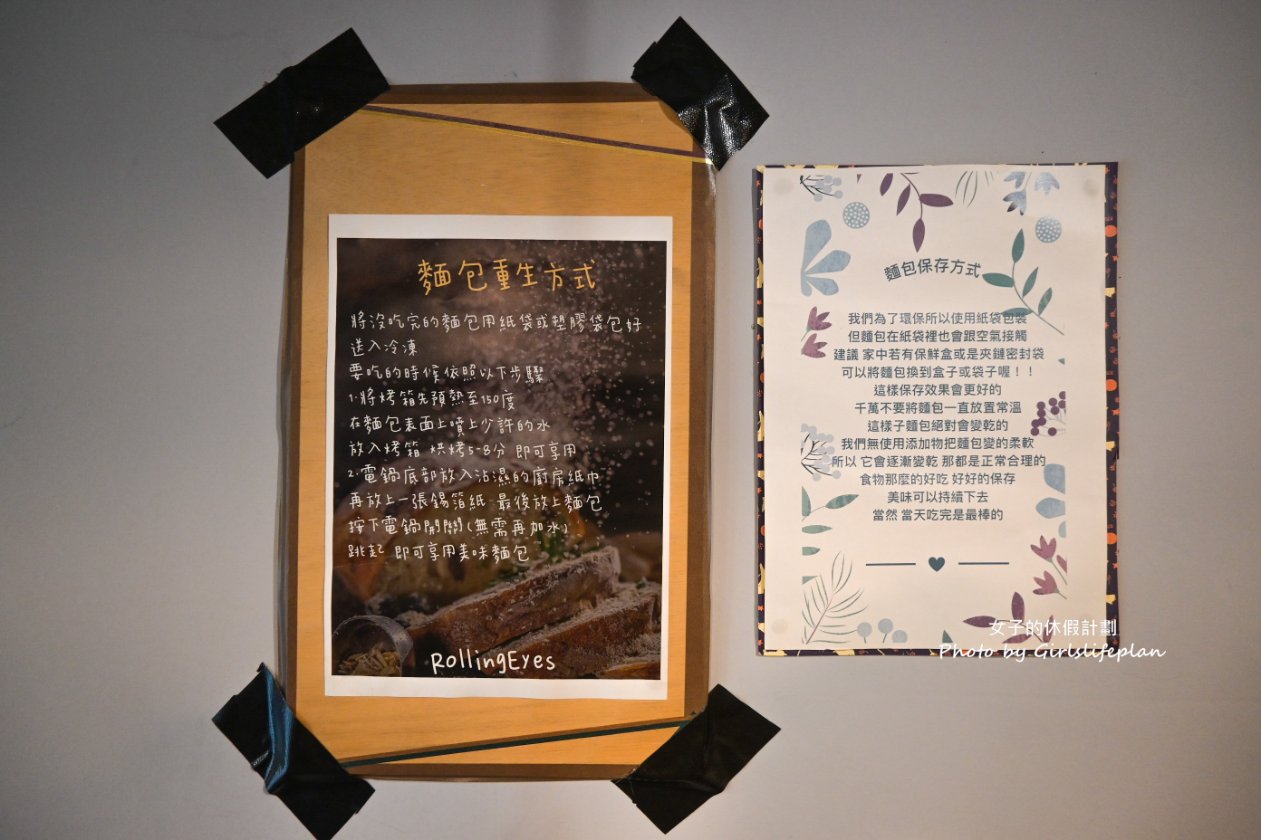 麵包重生方式
將沒吃完的麵包用紙袋或塑膠袋包好
送入冷凍
要吃的時候依照以下步驟
1.將烤箱先預熱至150度
在麵包表面上噴上少許的水
放入烤箱 烘烤5-8分 即可享用
2.電鍋底部放入沾濕的廚房紙巾
再放上一張錫箔紙 最後放上麵包
按下電鍋開關(無需再加水)
跳起 即可享用美味麵包
RollingEyes
麵包保存方式
我們為了環保所以使用紙袋包裝
但麵包在紙袋裡也會跟空氣接觸
建議 家中若有保鮮盒或是夾鏈密封袋
可以將麵包換到盒子或袋子喔！！
這樣保存效果會更好的
千萬不要將麵包一直放置常溫
這樣子麵包絕對會變乾的
我們無使用添加物把麵包變的柔軟
所以 它會逐漸變乾 那都是正常合理的
食物那麼的好吃 好好的保存
美味可以持續下去
當然 當天吃完是最棒的
女子的休假計劃
Photo by Girlslifeplan